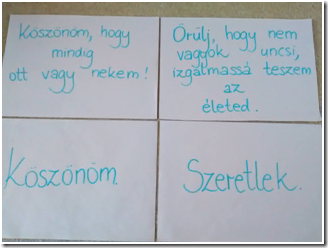 Köszönöm, hogy
mindig
ott vagy nekem!
Örülj, hogy nem
vagyok uncsi,
izgalmassá teszem
az
életed.
Köszönöm
Szeretlek.